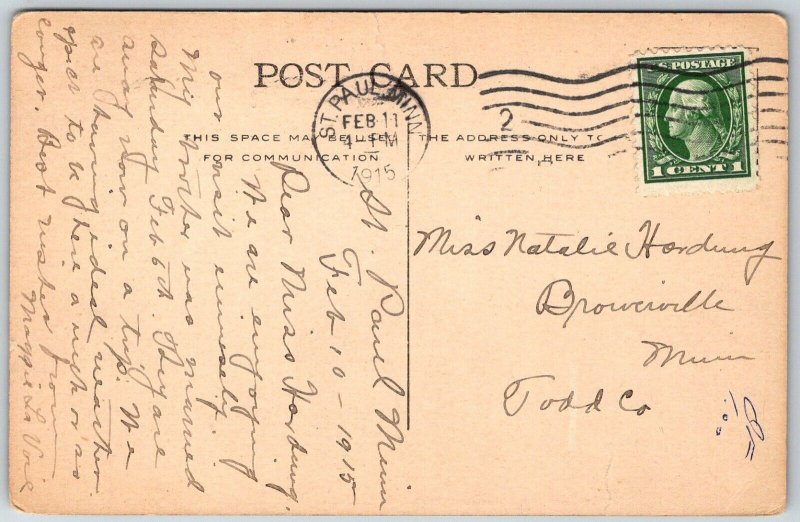 POST CARD
THIS SPACE MAY BE USED
FOR COMMUNICATION
THE ADDRESS ONLY TO
WRITTEN HERE
ST. PAUL, MINN.
FEB 11
4 PM
1915
2
U.S. POSTAGE
1 CENT 1
Miss Natalie Hardung
Browerville
Minn
Todd Co
St. Paul Minn
Feb 10 - 1915
Dear Miss Hardung,
We are enjoying
our visit immensely.
My brother was married
Saturday Feb 6th. They are
away now on a trip. We
are having ideal weather.
expect to be here a week or so
longer. Best wishes from
Maggie La Voie